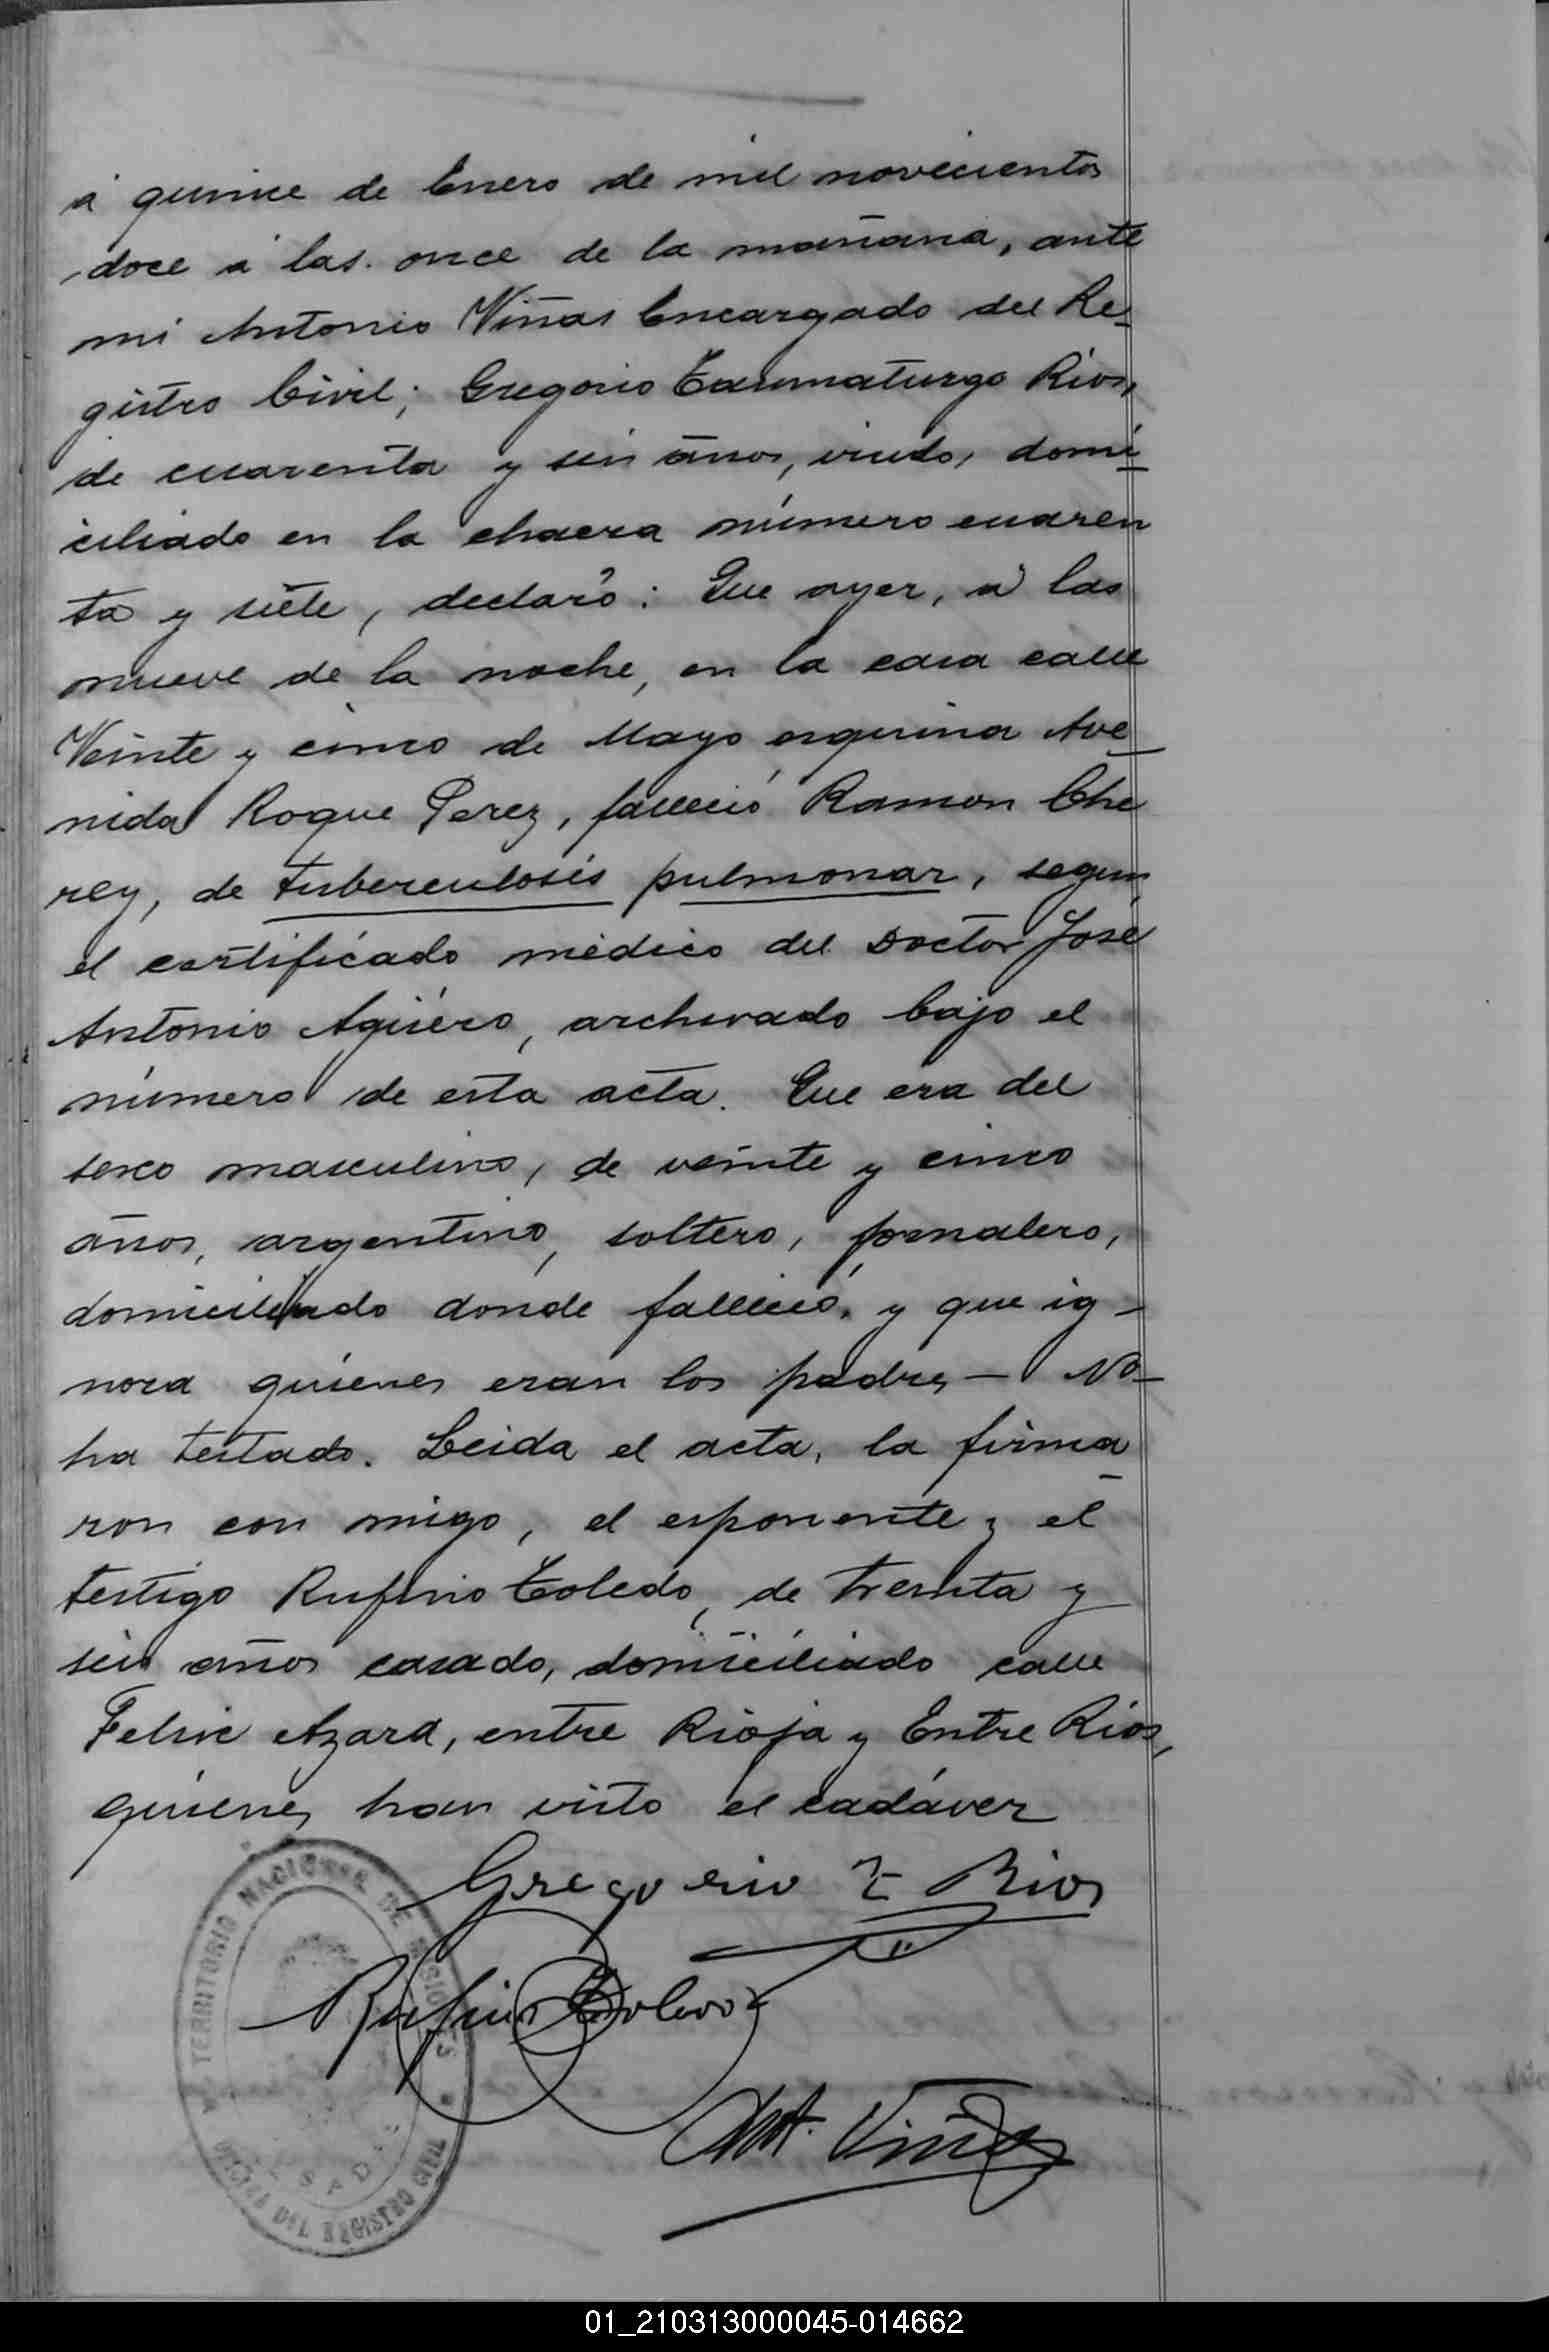 á quince de Enero de mil novecientos
doce á las once de la mañana, ante
mi Antonio Viñas Encargado del Re-
gistro Civil; Gregorio Taumaturgo Rios,
de cuarenta y seis años, viudo, domi-
ciliado en la chacra número cuaren
ta y siete, declaró: Que ayer, á las
nueve de la noche, en la casa calle
Veinte y cinco de Mayo esquina Ave-
nida Roque Perez, falleció Ramon Che
rey, de tuberculosis pulmonar, segun
el certificado médico del Doctor José
Antonio Agüero, archivado bajo el
número de esta acta. Que era del
sexo masculino, de veinte y cinco
años, argentino, soltero, jornalero,
domiciliado donde falleció, y que ig-
nora quienes eran los padres — No
ha testado. Leida el acta, la firma
ron con migo, el esponente y el
testigo Rufino Toledo, de treinta y
seis años casado, domiciliado calle
Felix Azara, entre Rioja y Entre Rios,
quienes han visto el cadáver
Gregorio T Rios
Rufino Toledo
Ant. Viñas
TERRITORIO NACIONAL DE MISIONES
POSADAS
OFICINA DEL REGISTRO CIVIL
01_210313000045-014662